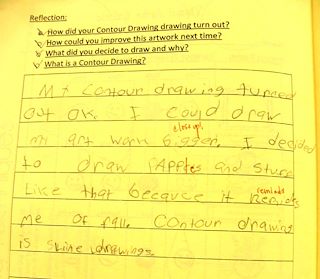 Reflection:
How did your Contour Drawing drawing turn out?
How could you improve this artwork next time?
What did you decide to draw and why?
What is a Contour Drawing?
My Contour drawing turned
out ok. I could draw
close up,
my art work bigger. I decided
to draw Apples and stuff
Like that because it Remides
reminds
me of fall. Contour drawing
is skine drawings